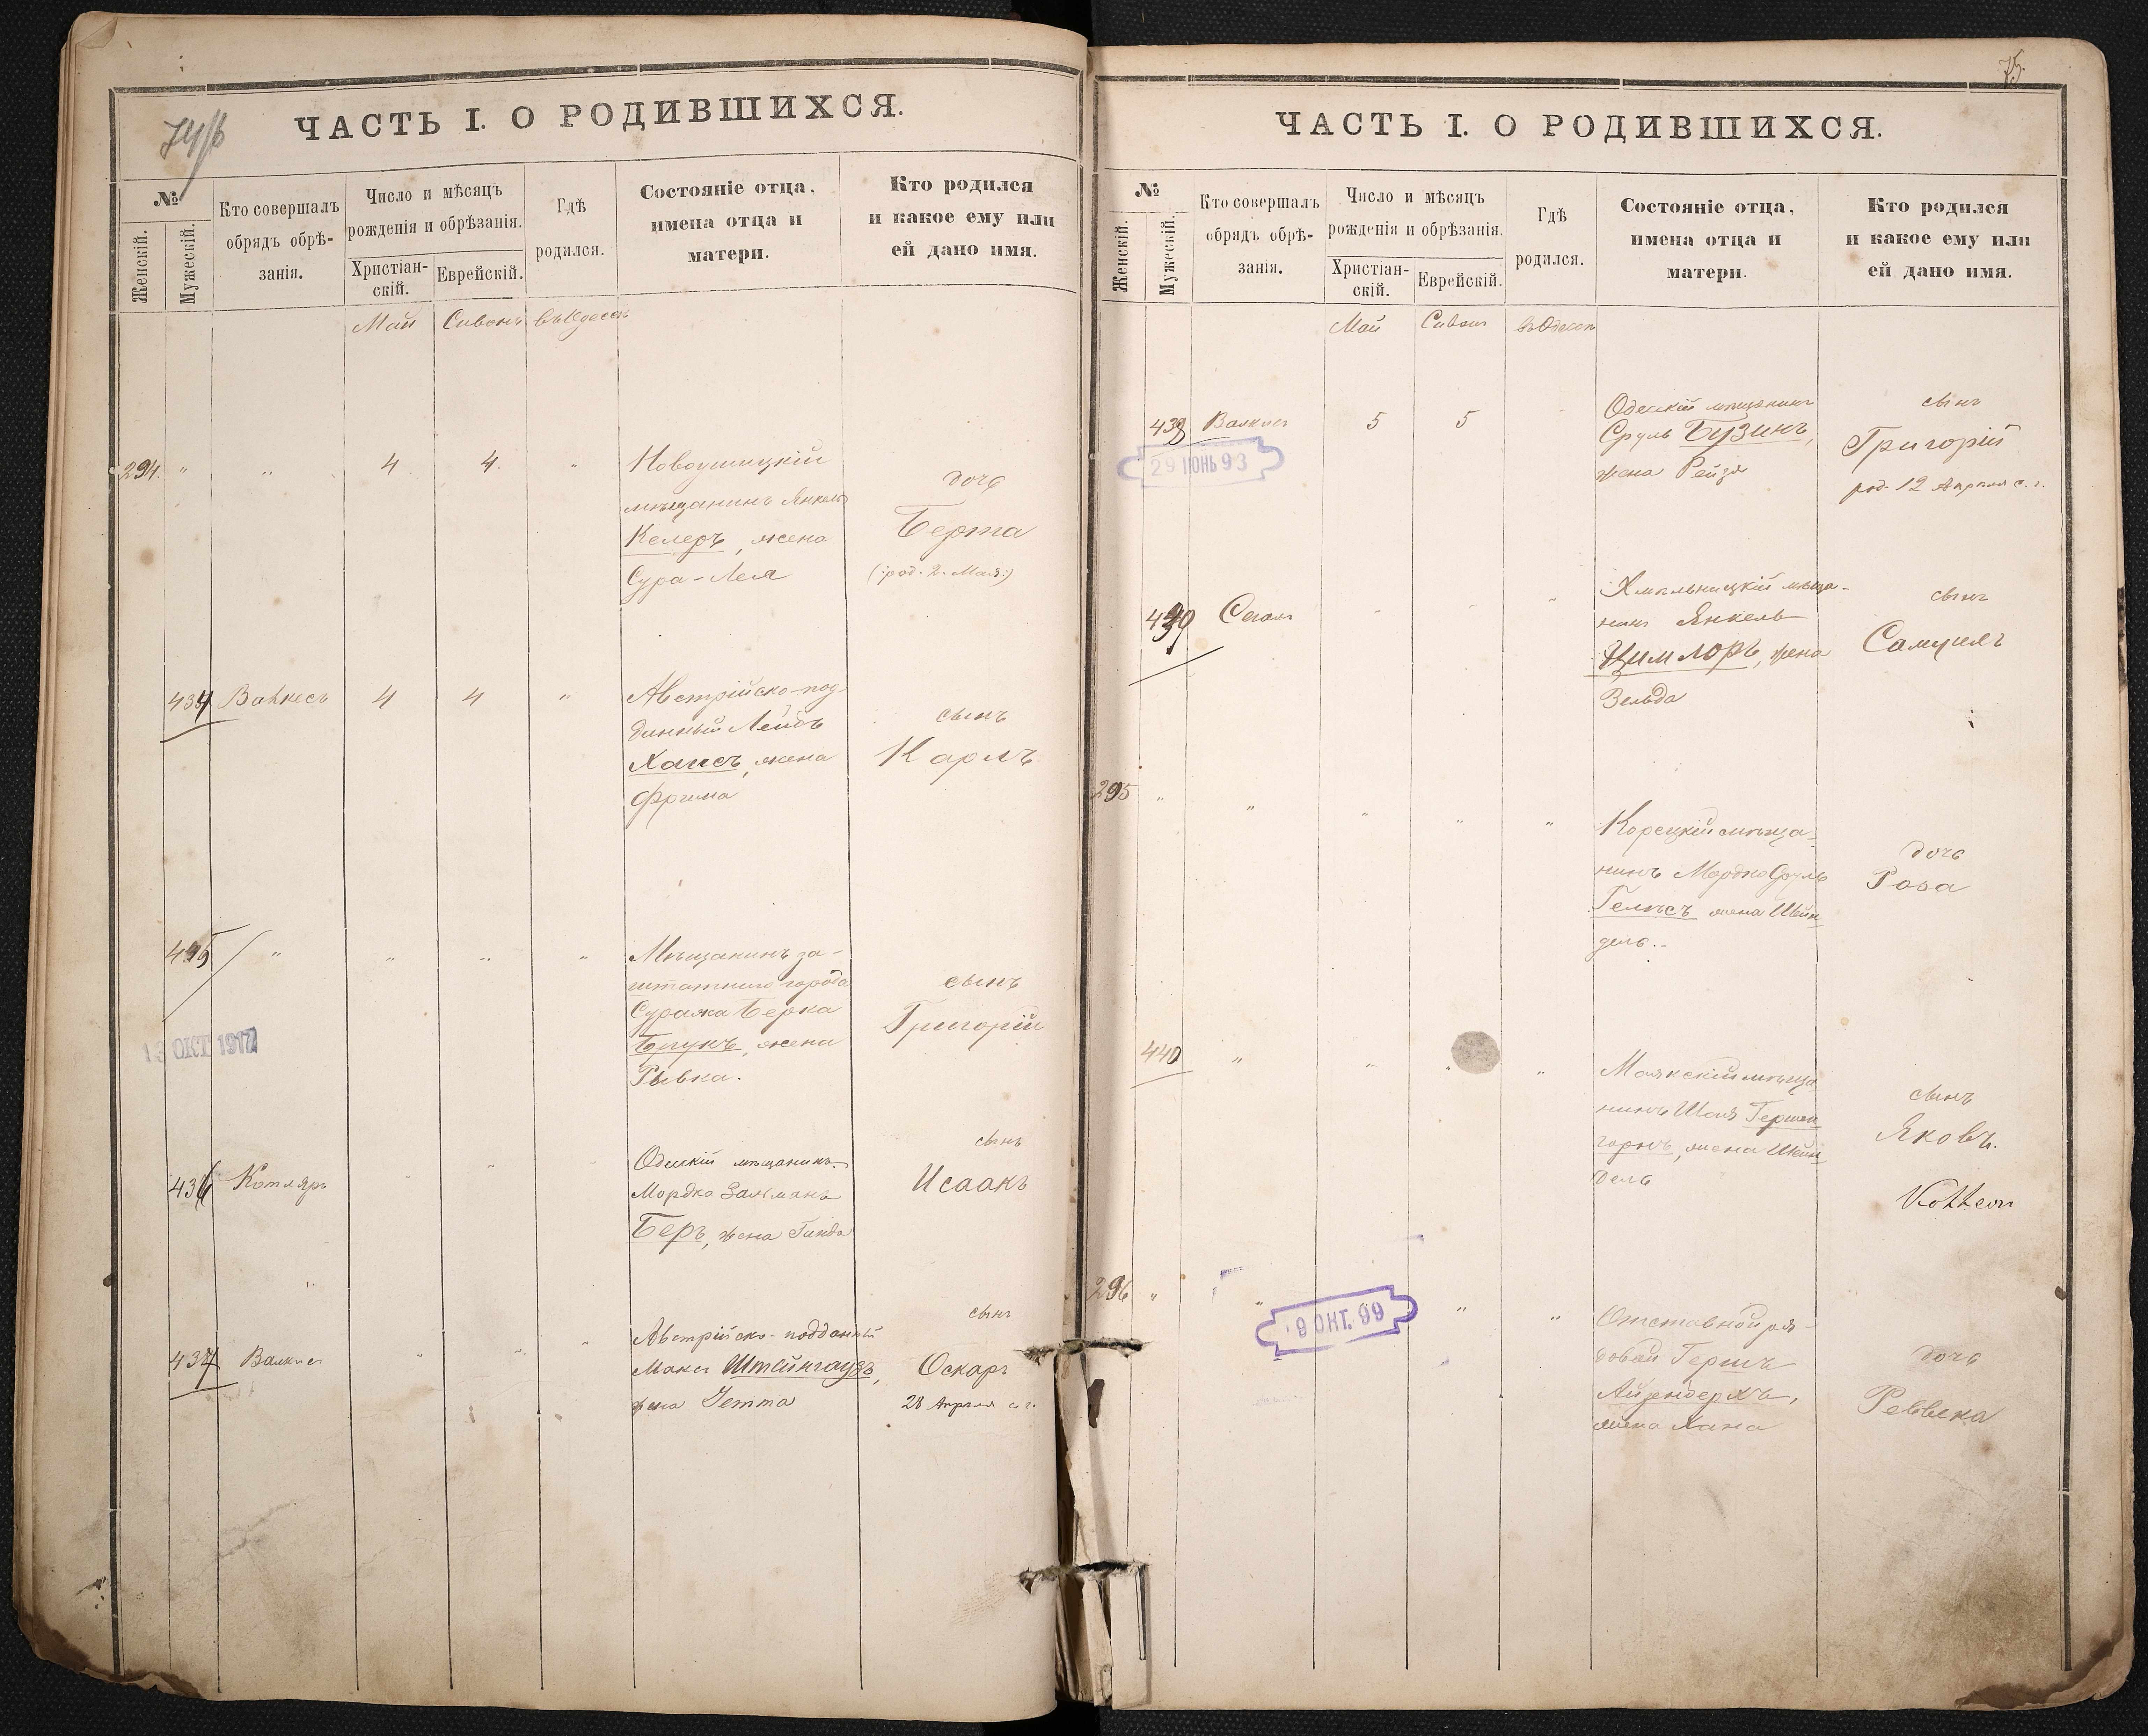 74/б
ЧАСТЬ I. О РОДИВШИХСЯ.
№
Женскій.
Мужескій.
Кто совершалъ
обрядъ обрѣ-
занія.
Число и мѣсяцъ
рожденія и обрѣзанія.
Христіан-
скій.
Еврейскій.
Гдѣ
родился.
Состояніе отца,
имена отца и
матери.
Кто родился
и какое ему или
ей дано имя.
Май Сивонъ въ Одессѣ
294. " " 4 4. "
Новоушицкій
мѣщанинъ Янкель
Келеръ, жена
Сура-Лея
дочь
Берта
(:род. 2. Мая:)
434 4 4 "
Австрійско-под-
данный Лейбъ
Хаисъ, жена
Фрима
сынъ
Карлъ
435 " " " "
Мѣщанинъ за-
штатного города
Суража Берка
Брукъ, жена
Рывка.
сынъ
Григорій
13 ОКТ 1917
436 Котляръ " "
Одесскій мѣщанинъ
Мордко Залманъ
Беръ, жена Гинда
сынъ
Исаакъ
437 " " "
Австрійско-подданный
Максъ Штейнгаузъ,
жена Іетта
сынъ
Оскаръ
28 Апрѣля с. г.
75.
ЧАСТЬ I. О РОДИВШИХСЯ.
№
Женскій.
Мужескій.
Кто совершалъ
обрядъ обрѣ-
занія.
Число и мѣсяцъ
рожденія и обрѣзанія.
Христіан-
скій.
Еврейскій.
Гдѣ
родился.
Состояніе отца,
имена отца и
матери.
Кто родился
и какое ему или
ей дано имя.
Май Сивон въ Одессѣ
438 5 5
29 ІЮНЬ 93
Одесскій мѣщанинъ
Сруль Бузинъ,
жена Рейзя
сынъ
Григорій
род. 12 Апрѣля с. г.
439 Сегалъ " "
Хмѣльницкій мѣща-
нинъ Янкель
Цимлоръ, жена
Зельда
сынъ
Самуилъ
295 " " " " "
Корецкій мѣща-
нинъ Мордко Сруль
Гелисъ жена Шейн-
дель.
дочь
Роза
440 " " " "
Маякскій мѣща-
нинъ Шая Гершен-
горнъ, жена Шейн-
дель
сынъ
Яковъ.
296 " " " "
9 ОКТ. 99
Отставной ря-
довой Гершъ
жена Хана
дочь
Реввека